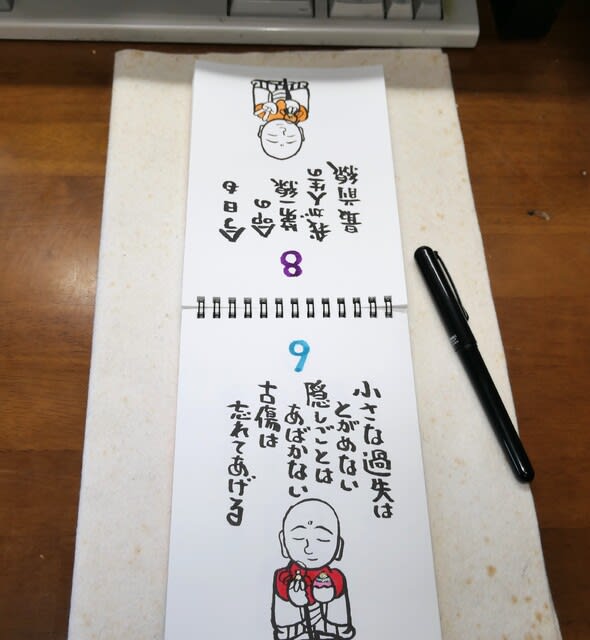 8
今日も
命の
第一線
我が人生の
最前線
9
小さな過失は
とがめない
隠しごとは
あばかない
古傷は
忘れてあげる